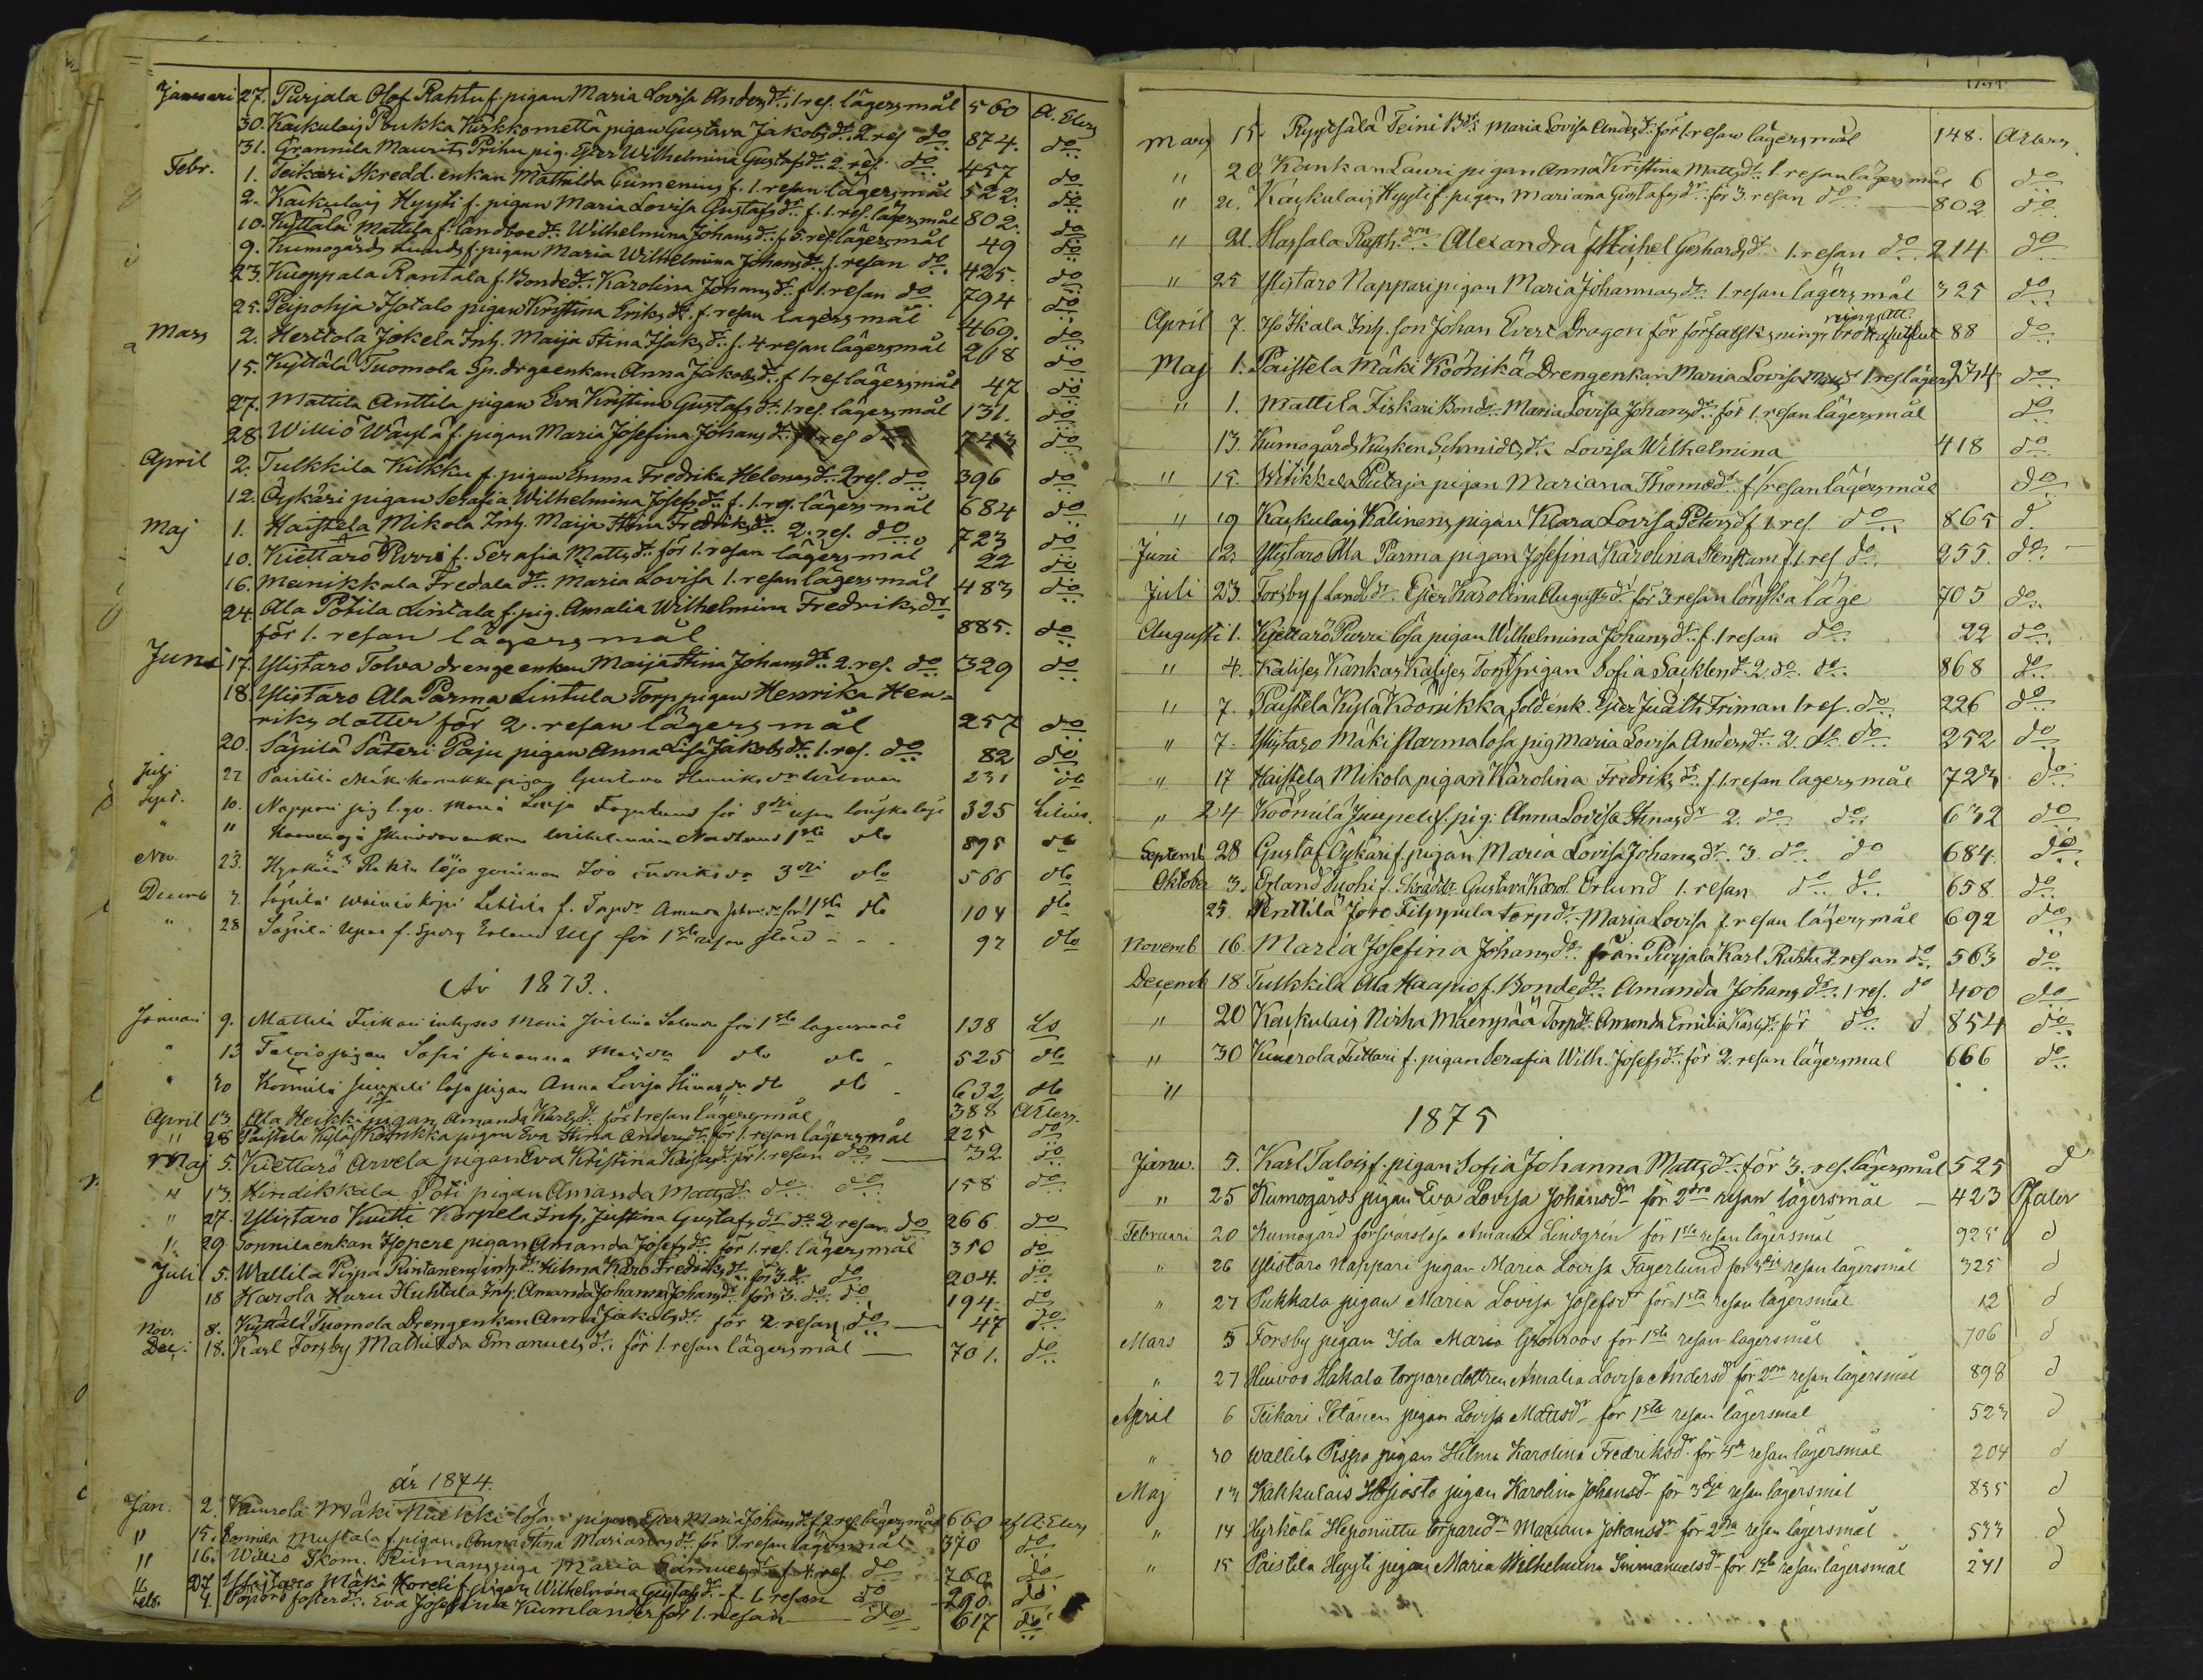 Januari 27. Purjala Olof Rahtu f. pigan Maria Lovisa Andersdr. 1 res. lägersmål 560 A. Elers
30. Kaukulais Poukka Kirkkometta pigan Gustava Jakobsdr. 2 res do 874. do
31. Grannila Maurits Prihu pig. Ester Wilhelmina Gustafsdr. 2 res. do 457 do
Febr. 1. Teikari Skredd. enkan Mathilda Cumenius f. 1. resan lägersmål 522. do
2. Kaukulais Hyyti f. pigan Maria Lovisa Gustafsdr. f. 1. res. lägersmål 802. do
10. Kyttälä Mattila f. landboedr. Wilhelmina Johansdr. f. 5. res lägersmål 49 do
9. Kumogårds Lunds f. pigan Maria Wilhelmina Johansdr. f. resan do 425. do
23. Kuoppala Rantala f. Bondedr. Karolina Johansdr. f 1. resan do 794 do
25. Peipohja Isotalo pigan Kristina Eriksdr. f. resan lagersmål 469. do
Mars 2. Herttola Jokela Inh. Maija Stina Isaksdr. f. 4 resan lägersmål 268 do
15. Kyttälä Tuomola Sp. drgeenkan Anna Jakobsdr. f 1 res lägersmål 47 do
27. Mattila Anttila pigan Eva Kristina Gustafsdr. 1. res. lägersmål 131. do
28. Williö Wäylä f. pigan Maria Josefina Johansdr. res do 743 do
April 2. Tulkkila Kukku f. pigan Emma Fredrika Helenasdr. 2 res. do 396 do
12. Öykäri pigan Serafia Wilhelmina Josefsdr. f. 1. res. lägersmål 684 do
Maj 1. Haistela Mikola Inh. Maija Stina Fredriksdr. 2. res. do 723 do
10. Kiettarö Purri f. Serafia Mattsdr. för 1. resan lägersmål 22 do
16. Meinikkala Fredala dr. Maria Lovisa 1. resan lägersmål 483 do
24. Ala Potila Lintala f. pig. Amalia Wilhelmina Fredriksdr
för 1. resan lägersmål 885. do
Juni 17. Ylistaro Tolva drengeenkan Maija Stina Johansdr. 2. res. do 329 do
18. Ylistaro Ala Parma Lintula Torp pigan Henrika Hen-
riks dotter för 2. resan lägersmål 257 do
20. Säpilä Säteri Paju pigan Anna Lisa Jakobsdr. 1. res. do 82 do
Julj 27 Paistila Mäki pigan Gustava Henriksdr 231 do
Sept. 10. Nappari pig Maria Lovisa Fagerlund för 3die resan lönskaläge 325 Lilius.
" " Wilhelmina Nordlund 1sta do 895 do
Nov. 23. Rahtu 3die do 566 do
Decemb 7. Säpilä f. Torpdr Amanda för 1sta do 104 do
" 28 Säpilä f. Erland Ulf för 1sta resan 92 do
År 1873.
Januari 9. Mattila Fiskari inhyses Maria Justina Salomon för 1sta lägersmål 138 Ls
" 13 Talois pigan Sofia Johanna Mattsdr do do 525 do
" 30 Köömilä Juupeli lösa pigan Anna Lovisa Stinasdr do do 632 do
April 13. Ala Heikki pigan Amanda Karlsdr. för 1 resan lägersmål 388 A Elers.
" 28 Paistela Kylä Köönikka pigan Eva Stina Andersdr. för 1. resan lägersmål 225 do
Maj 5. Kiettarö Arvela pigan Eva Kristina Kaisasdr. för 1. resan do 32 do
" 13. Hindikkala Poti pigan Amanda Mattsdr. do do 158 do
" 27. Ylistaro Kuitti Korpela Inh. Justina Gustafsdr do 2 resan do 266 do
" 29. Sonnilaenkan Isopere pigan Amanda Josefsdr. för 1. res. lägersmål 350 do
Juli 5. Wallila Pispa Rintanens inh dr. Hilma Karo Fredriksdr. för 3. do 204. do
18 Harola Huru Huhtala Inh. Amanda Johanna Johansdr. för 3. do do 194. do
Nov. 8. Kyttälä Tuomola Drengenkan Anna Jakobsdr. för 2. resan do 47 do
Dec: 18. Karl Forsby Mathilda Emanuelsdr. för 1. resan lägersmål 701. do
år 1874.
Jan. 2. Kuurola Mäki Kuikki lösa pigan Ester Maria Johansdr f. 2 res. lägersmål 660 af A. Elers
" 15. Sonnila Mustala f. pigan Anna Stina Mariansdr. för 1. resan lägersmål 370 do
" 16. Willio Skom. Riimans piga Maria Samuelsdr. f. 4. res. do 760 do
" 27. Ylistaro Mäki Horeli f. pigan Wilhelmina Gustafsdr. f. 1. resan do 290. do
Feb. 4. Sopord fosterdr. Eva Josefina Kumlander för 1. resan do 617 do
Mars 15. Ryytsälä Teini Bdr. Maria Lovisa Andersdr. för 1. resan lägersmål 148. A Elers.
" 20. Kankan Lauri pigan Anna Kristina Mattsdr. 1. resan lägersmål 6 do
" 21. Kaukulais Hyyti f. pigan Mariana Gustafsdr. för 3. resan do 802 do
" 21. Hassala Rusth. dr. Alexandra Rachel Gerhardsdr 1. resan do 214 do
" 25 Ylistaro Nappari pigan Maria Johannasdr. 1. resan lägersmål 325 do
April 7. Iso Iskala Inh. son Johan Evert Dragon för försatsknings brott afsutslut 88 do
Maj 1. Paistela Mäki Köönikä Drengenkan Maria Lovisa Mattsdr 1. res lägers 274 do
" 1. Mattila Fiskari Bondr. Maria Lovisa Johansdr. för 1. resan lägersmål do
13. Kumogårds Kusken Schmidtsdr. Lovisa Wilhelmina 418 do
" 15. Witikkala Putaja pigan Mariana Thomedr. f. 1 resan lägersmål do
" 19 Kaukulais Kalinens pigan Klara Lovisa Petersdr f 1. res. do 865 d.
Juni 12. Ylistaro Ala Parma pigan Josefina Karolina Stenstam f 1. res do 255. do
Juli 23. Forsby f. Landb. dr. Ester Karolina Augustsdr. för 3 resan lönska läge 705 do
Augusti 1. Kiettarö Purri lösa pigan Wilhelmina Johansdr. f. 1 resan do 22 do
" 4. Kalises Kankas Kalises Torp pigan Sofia Sacklen dr. 2. do do 868 do
" 7. Paistela Kylä Köönikka Sold. enk. Ester Judith Friman 1 res. do 226 do
" 7. Ylistaro Mäki Parma lösa pig Maria Lovisa Andersdr. 2. do do 252 do
" 17 Haistela Mikola pigan Karolina Fredriksdr. f. 1. resan lagersmål 723 do
" 24 Köömilä Juupeli f. pig. Anna Lovisa Stinasdr 2. do do 632 do
Septemb 28 Gustaf Öykäri f. pigan Maria Lovisa Johansdr. 3. do do 684. do
Oktober 3. Erland Tuohi f. Skräddr. Gustava Karol. Erlund 1. resan do do 658. do
25. Penttilä Joro Filppula torpdr. Maria Lovisa f. resan lägersmål 692 do
Novemb 16. Maria Josefina Johansdr. från Purjala Karl Rahtu 2. resan do 563 do
Decemb 18 Tulkkila Ala Haapio f. Bondedr. Amanda Johansdr. 1 res. do 400 do
" 20 Kaukulais Nirha Mäenpää Torpdr. Amanda Emilia Karlsdr. för do d 854 do
" 30 Kuurola Futtari f. pigan Serafia Wilh. Josefsdr. för 2. resan lägersmal 666 do
"
1875
Janu. 5. Karl Talois f. pigan Sofia Johanna Mattsdr. för 3. res. lägersmål 525 d
" 25 Kumogårds pigan Eva Lovisa Johansdr för 2dra resan lägersmål 423 Paler
Februari 20 Kumogård försvarslösa Amanda Lindgrén för 1sta resan lägersmål 925 d
" 26 Ylistaro Nappari pigan Maria Lovisa Fagerlund för 3dje resan lägersmål 325 d
" 27 Pukkala pigan Maria Lovisa Josefsdr för 1sta resan lägersmål 12 d
Mars 5 Forsby pigan Ida Maria Grönroos för 1sta resan lagersmål 706 d
" 27 Huivoo Hakala torpare dottren Amalia Lovisa Andersdr för 2dra resan lägersmål 898 d
April 6 Teikari Setänen pigan Lovisa Mattsdr för 1sta resan lägersmål 523 d
" 30 Wallila Pispa pigan Hilma Karolina Fredriksdr för 4de resan lägersmål 204 d
Maj 13 Kakkulais Hossiosta pigan Karolina Johansdr för 3dje resan lägersmål 835 d
" 14 Hyrkölä Heponiittu torparedr Mariana Johansdr för 2dra resan lägersmål 533 d
" 15 Paistila Hyyti pigan Maria Wilhelmina Immanuelsdr för 1sta resan lägersmål 241 d